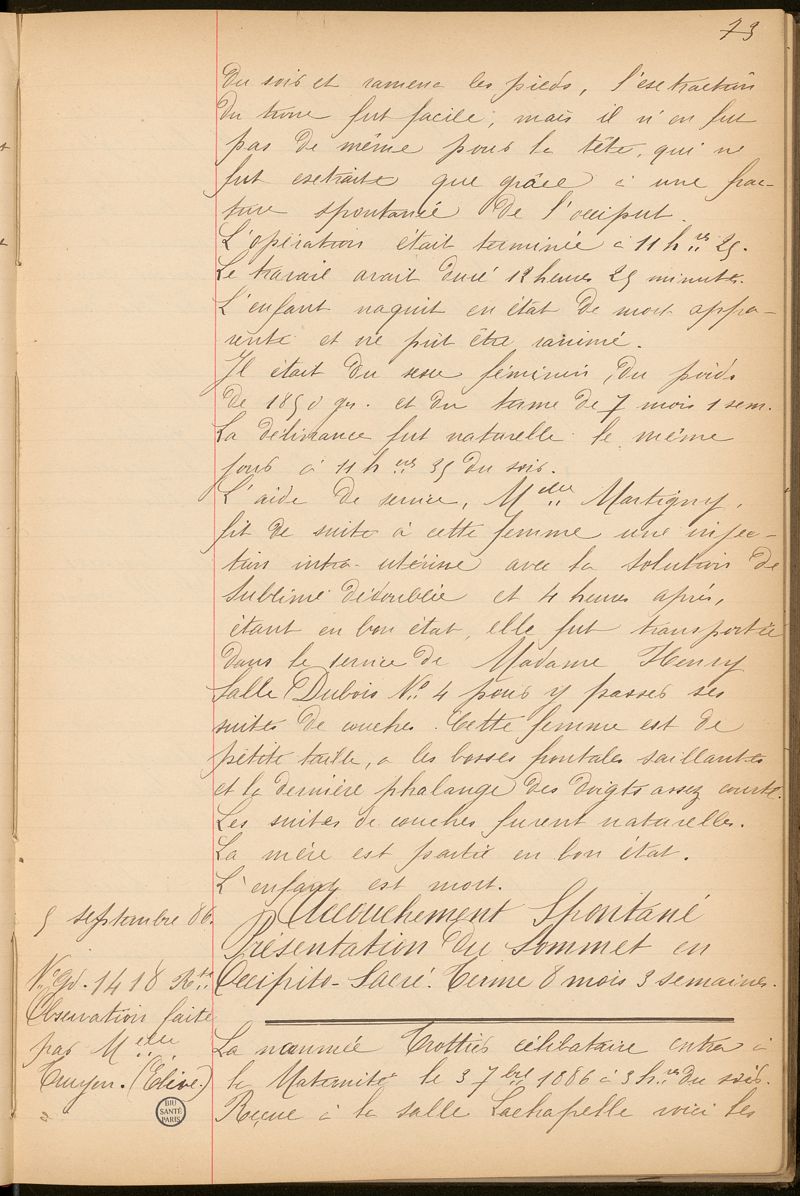 73
du soir et ramena les pieds, l'extraction
du tronc fut facile, mais il n'en fut
pas de même pour la tête, qui ne
fut extraite que grâce à une frac-
ture spontanée de l'occiput.
L'opération était terminée à 11 h.res 25.
Le travail avait duré 12 heures 25 minutes.
L'enfant naquit en état de mort appa-
rente et ne pût être ranimé.
Il était du sexe féminin, du poids
de 1850 grs. et du terme de 7 mois 1 sem.
La délivrance fut naturelle le même
jour à 11 h.res 35 du soir.
L'aide de service, Melle Martigny,
fit de suite à cette femme une injec-
tion intra-utérine avec la solution de
Sublimé dédoublée et 4 heures après,
étant en bon état, elle fut transportée
dans le service de Madame Henry
Salle Dubois No 4 pour y passer ses
suites de couches. Cette femme est de
petite taille, a les bosses frontales saillantes
et la dernière phalange des doigts assez courte.
Les suites de couches furent naturelles.
La mère est partie en bon état.
L'enfant est mort.
5 septembre 86.
Accouchement Spontané
Présentation du Sommet en
Occipito-Sacré. Terme 8 mois 3 semaines.
No Gd. 1418 Rte
Observation faite
par Melle
(Elève.)
La nommée Trottier célibataire entra à
la Maternité le 3 7bre 1886 à 3 h.res du soir.
Reçue à la salle Lachapelle voici les
BIU
SANTÉ
PARIS